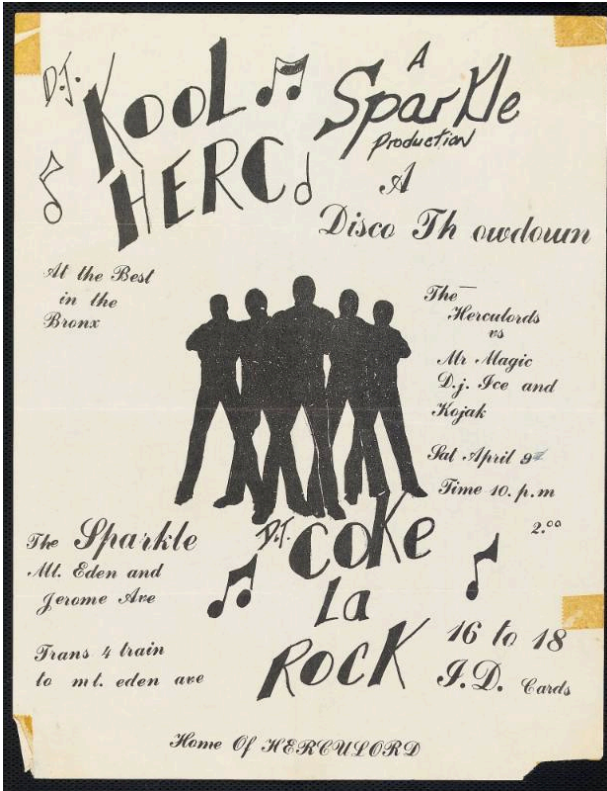 D.J. KOOL
HERC
A
Sparkle
Production
A
Disco Th owdown
At the Best
in the
Bronx
The
Herculords
vs
Mr Magic
D.j. Ice and
Kojak
Sat April 9th
Time 10. p.m
2.00
The Sparkle
Mt. Eden and
Jerome Ave
Trans 4 train
to mt. eden ave
D.J. COKE
La
ROCK
16 to 18
I.D. Cards
Home Of HERCULORD